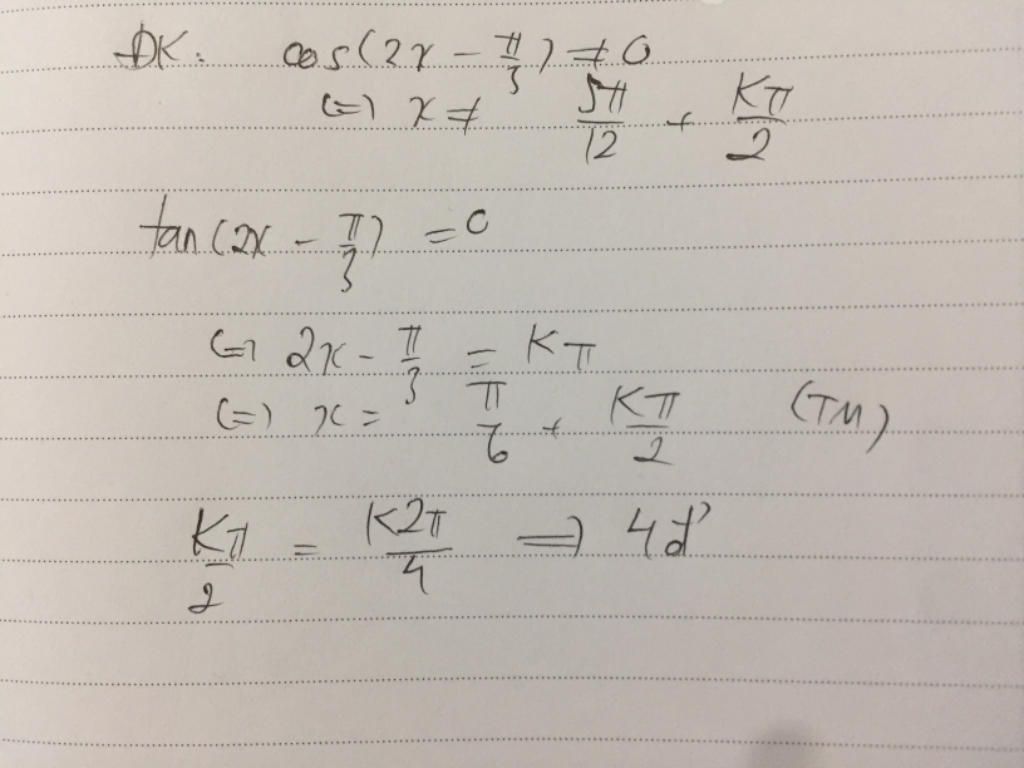 ĐK: cos(2x - π/3) ≠ 0
(=) x ≠ 5π/12 + Kπ/2
tan(2x - π/3) = 0
(=) 2x - π/3 = Kπ
(=) x = π/6 + Kπ/2 (TM)
Kπ/2 = K2π/4 => 4đ'